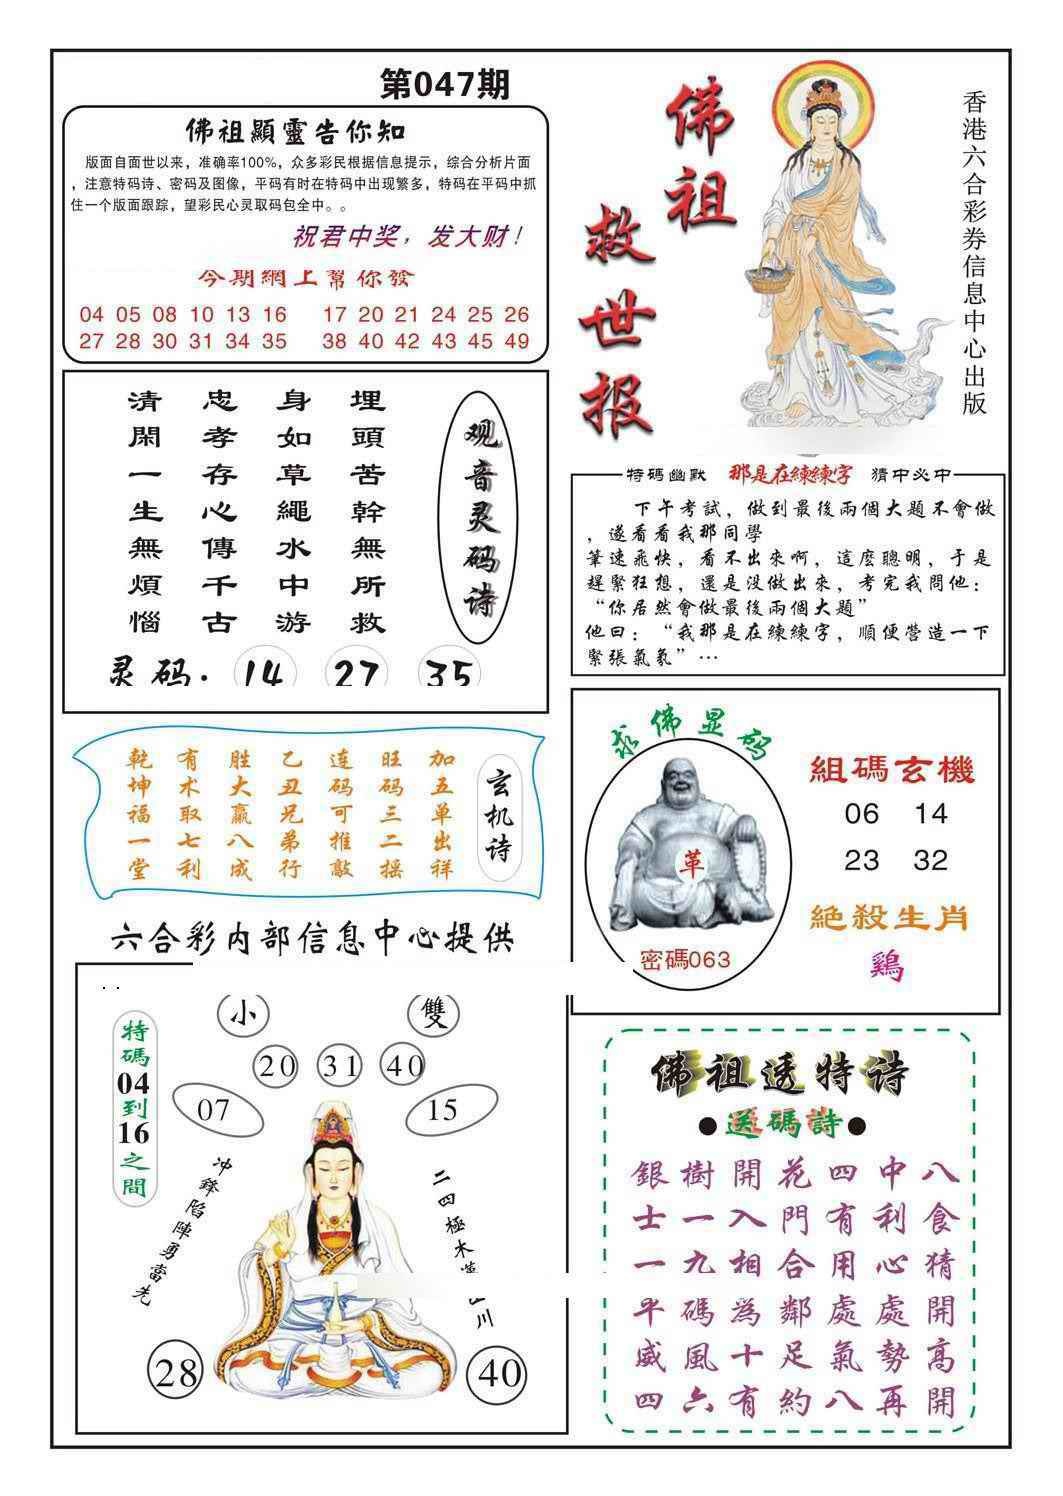 第047期
佛祖顯靈告你知
版面自面世以来，准确率100%，众多彩民根据信息提示，综合分析片面
，注意特码诗、密码及图像，平码有时在特码中出现繁多，特码在平码中抓
住一个版面跟踪，望彩民心灵取码包全中。。
祝君中奖，发大财！
今期網上幫你發
04 05 08 10 13 16 17 20 21 24 25 26
27 28 30 31 34 35 38 40 42 43 45 49
佛祖
救世报
香港六合彩券信息中心出版
观音灵码诗
埋頭苦幹無所救
身如草繩水中游
忠孝存心傳千古
清閑一生無煩惱
灵码. 14 27 35
特碼幽默 那是在練練字 猜中必中
下午考試，做到最後兩個大題不會做
，遂看看我那同學
筆速飛快，看不出來啊，這麼聰明，于是
趕緊狂想，還是没做出來，考完我問他：
“你居然會做最後兩個大題”
他曰：“我那是在練練字，順便營造一下
緊張氣氛”…
玄机诗
加五单出祥
旺码三二摇
连码可推敲
乙丑兄弟行
胜大赢八成
有术取七利
乾坤福一堂
求佛显码
革
密碼063
組碼玄機
06 14
23 32
絕殺生肖
鷄
六合彩内部信息中心提供
小 雙
20 31 40
07 15
特碼04到16之間
冲鋒陷陣勇當先
二四極木
川
28 40
佛祖透特诗
●送碼詩●
銀樹開花四中八
士一入門有利食
一九相合用心猜
平碼為鄰處處開
威風十足氣勢高
四六有約八再開